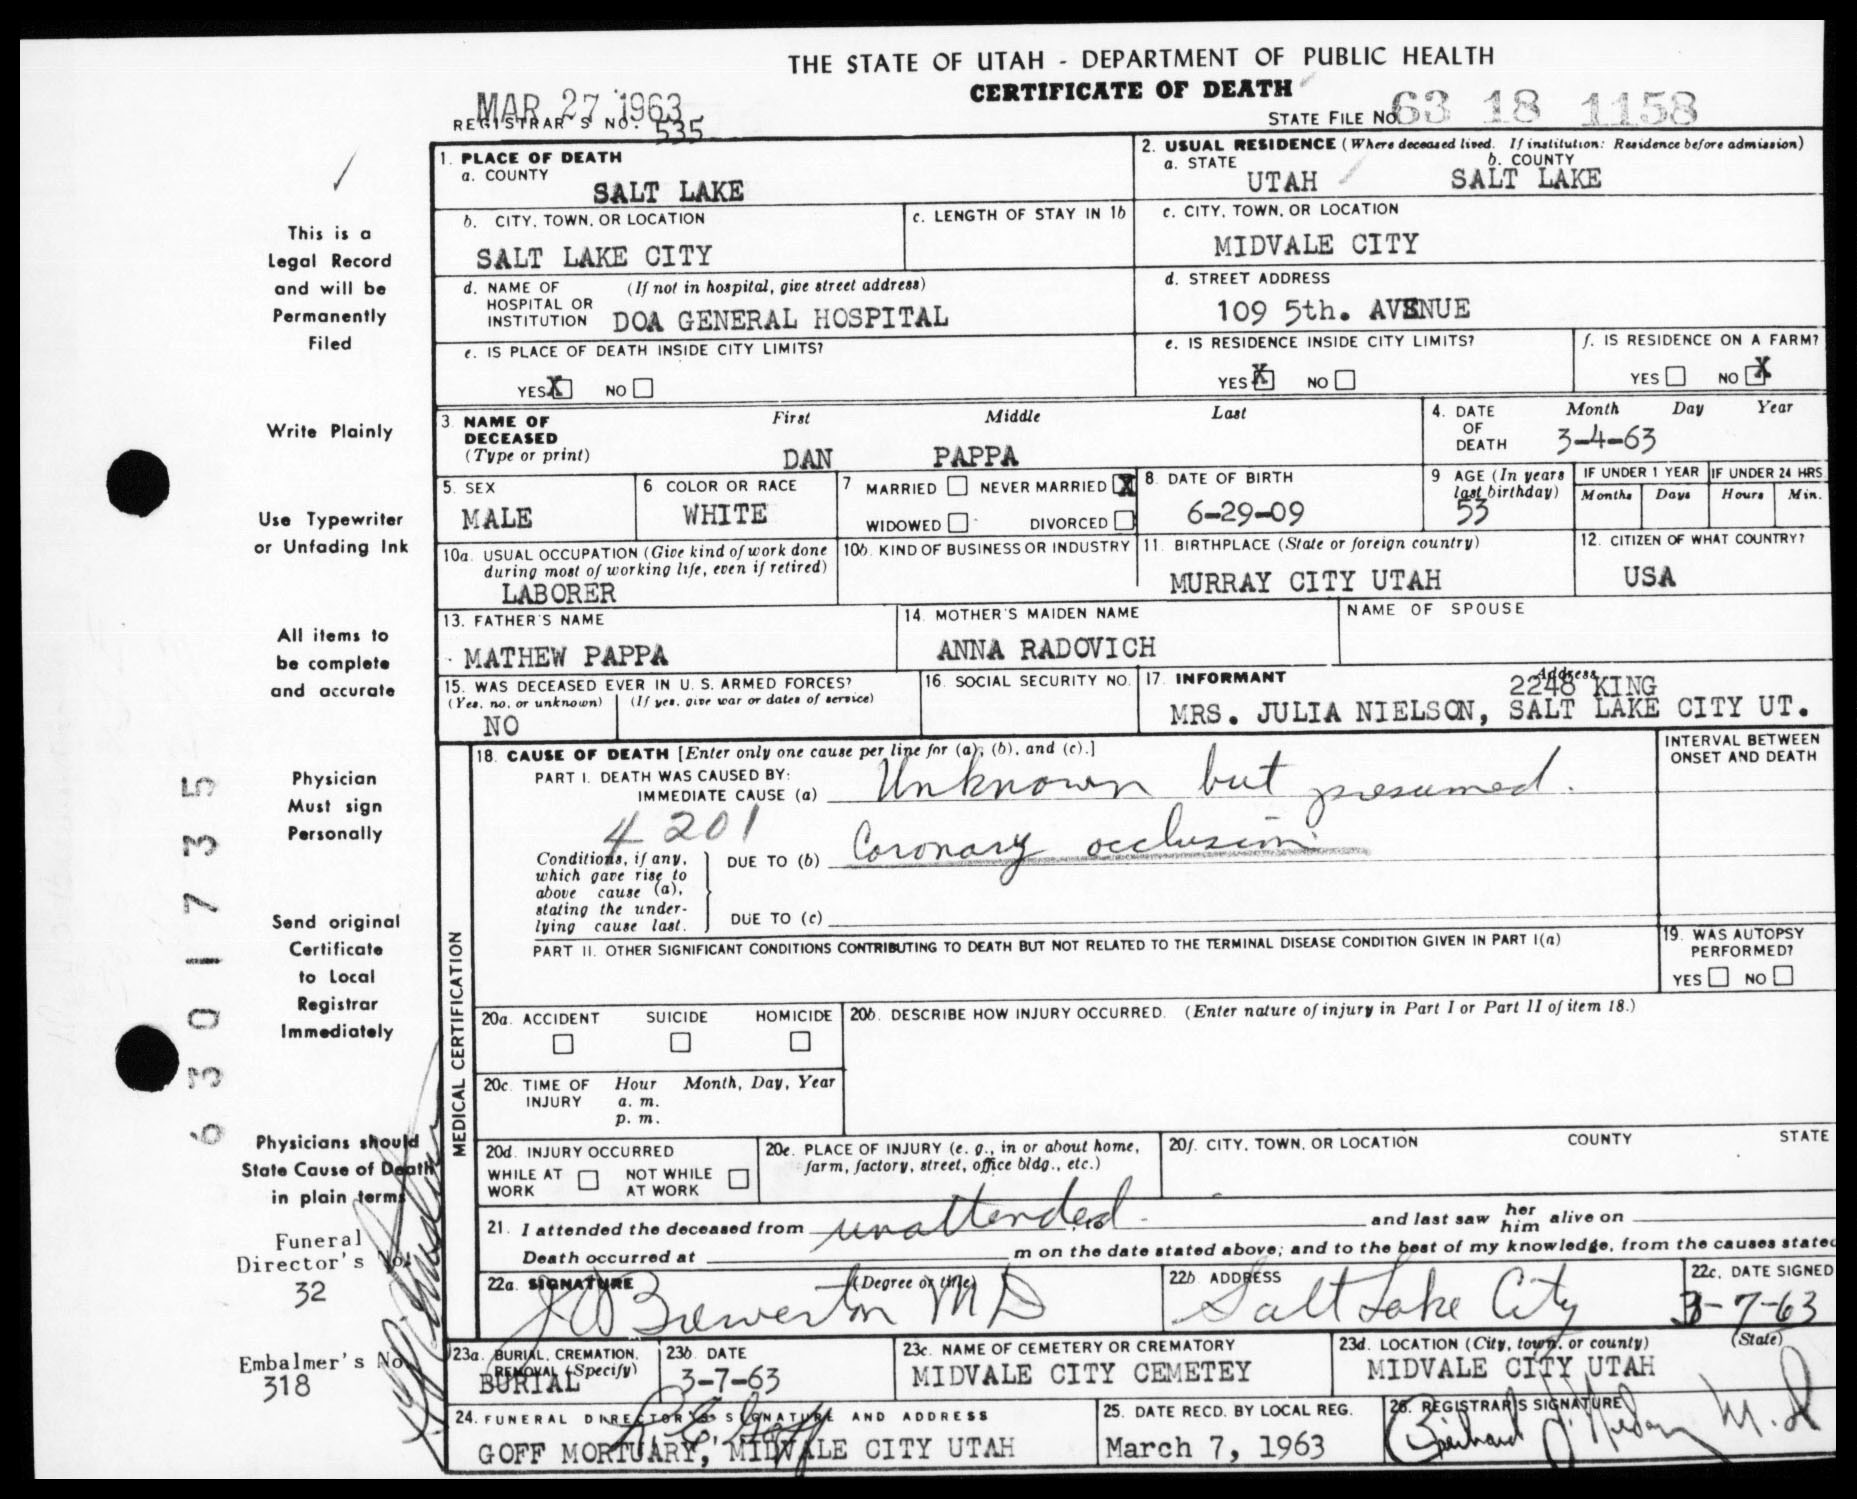 THE STATE OF UTAH - DEPARTMENT OF PUBLIC HEALTH
CERTIFICATE OF DEATH
MAR 27 1963
REGISTRAR'S NO. 535
STATE FILE No. 63 18 1158
1. PLACE OF DEATH
a. COUNTY
SALT LAKE
2. USUAL RESIDENCE (Where deceased lived. If institution: Residence before admission)
a. STATE b. COUNTY
UTAH SALT LAKE
b. CITY, TOWN, OR LOCATION
SALT LAKE CITY
c. LENGTH OF STAY IN 1b
c. CITY, TOWN, OR LOCATION
MIDVALE CITY
d. NAME OF (If not in hospital, give street address)
HOSPITAL OR
INSTITUTION DOA GENERAL HOSPITAL
d. STREET ADDRESS
109 5th. AVENUE
e. IS PLACE OF DEATH INSIDE CITY LIMITS?
YES X NO
e. IS RESIDENCE INSIDE CITY LIMITS?
YES X NO
f. IS RESIDENCE ON A FARM?
YES NO X
3 NAME OF First Middle Last
DECEASED
(Type or print) DAN PAPPA
4. DATE Month Day Year
OF
DEATH 3-4-63
5. SEX
MALE
6 COLOR OR RACE
WHITE
7 MARRIED NEVER MARRIED X
WIDOWED DIVORCED
8. DATE OF BIRTH
6-29-09
9 AGE (In years
last birthday)
53
IF UNDER 1 YEAR IF UNDER 24 HRS
Months Days Hours Min.
10a. USUAL OCCUPATION (Give kind of work done
during most of working life, even if retired)
LABORER
10b. KIND OF BUSINESS OR INDUSTRY
11. BIRTHPLACE (State or foreign country)
MURRAY CITY UTAH
12. CITIZEN OF WHAT COUNTRY?
USA
13. FATHER'S NAME
MATHEW PAPPA
14. MOTHER'S MAIDEN NAME
ANNA RADOVICH
NAME OF SPOUSE
15. WAS DECEASED EVER IN U. S. ARMED FORCES?
(Yes, no, or unknown) (If yes, give war or dates of service)
NO
16. SOCIAL SECURITY NO.
17. INFORMANT Address
2248 KING
MRS. JULIA NIELSON, SALT LAKE CITY UT.
MEDICAL CERTIFICATION
18. CAUSE OF DEATH [Enter only one cause per line for (a), (b), and (c).]
PART I. DEATH WAS CAUSED BY:
IMMEDIATE CAUSE (a) Unknown but presumed.
4 201
DUE TO (b) Coronary occlusion
Conditions, if any,
which gave rise to
above cause (a),
stating the under-
lying cause last.
DUE TO (c)
INTERVAL BETWEEN
ONSET AND DEATH
PART II. OTHER SIGNIFICANT CONDITIONS CONTRIBUTING TO DEATH BUT NOT RELATED TO THE TERMINAL DISEASE CONDITION GIVEN IN PART I(a)
19. WAS AUTOPSY
PERFORMED?
YES NO
20a. ACCIDENT SUICIDE HOMICIDE
20b. DESCRIBE HOW INJURY OCCURRED. (Enter nature of injury in Part I or Part II of item 18.)
20c. TIME OF Hour Month, Day, Year
INJURY a. m.
p. m.
20d. INJURY OCCURRED
WHILE AT NOT WHILE
WORK AT WORK
20e. PLACE OF INJURY (e. g., in or about home,
farm, factory, street, office bldg., etc.)
20f. CITY, TOWN, OR LOCATION COUNTY STATE
21. I attended the deceased from unattended and last saw her him alive on
Death occurred at m on the date stated above; and to the best of my knowledge, from the causes stated
22a. SIGNATURE (Degree or title)
J W Brewerton MD
22b ADDRESS
Salt Lake City
22c. DATE SIGNED
3-7-63
23a. BURIAL, CREMATION,
REMOVAL (Specify)
BURIAL
23b. DATE
3-7-63
23c. NAME OF CEMETERY OR CREMATORY
MIDVALE CITY CEMETEY
23d. LOCATION (City, town, or county) (State)
MIDVALE CITY UTAH
24. FUNERAL DIRECTOR'S SIGNATURE AND ADDRESS
GOFF MORTUARY, MIDVALE CITY UTAH
25. DATE RECD. BY LOCAL REG.
March 7, 1963
26. REGISTRAR'S SIGNATURE
M.D
This is a
Legal Record
and will be
Permanently
Filed
Write Plainly
Use Typewriter
or Unfading Ink
All items to
be complete
and accurate
Physician
Must sign
Personally
Send original
Certificate
to Local
Registrar
Immediately
Physicians should
State Cause of Death
in plain terms
Funeral
Director's No.
32
Embalmer's No.
318
6301735